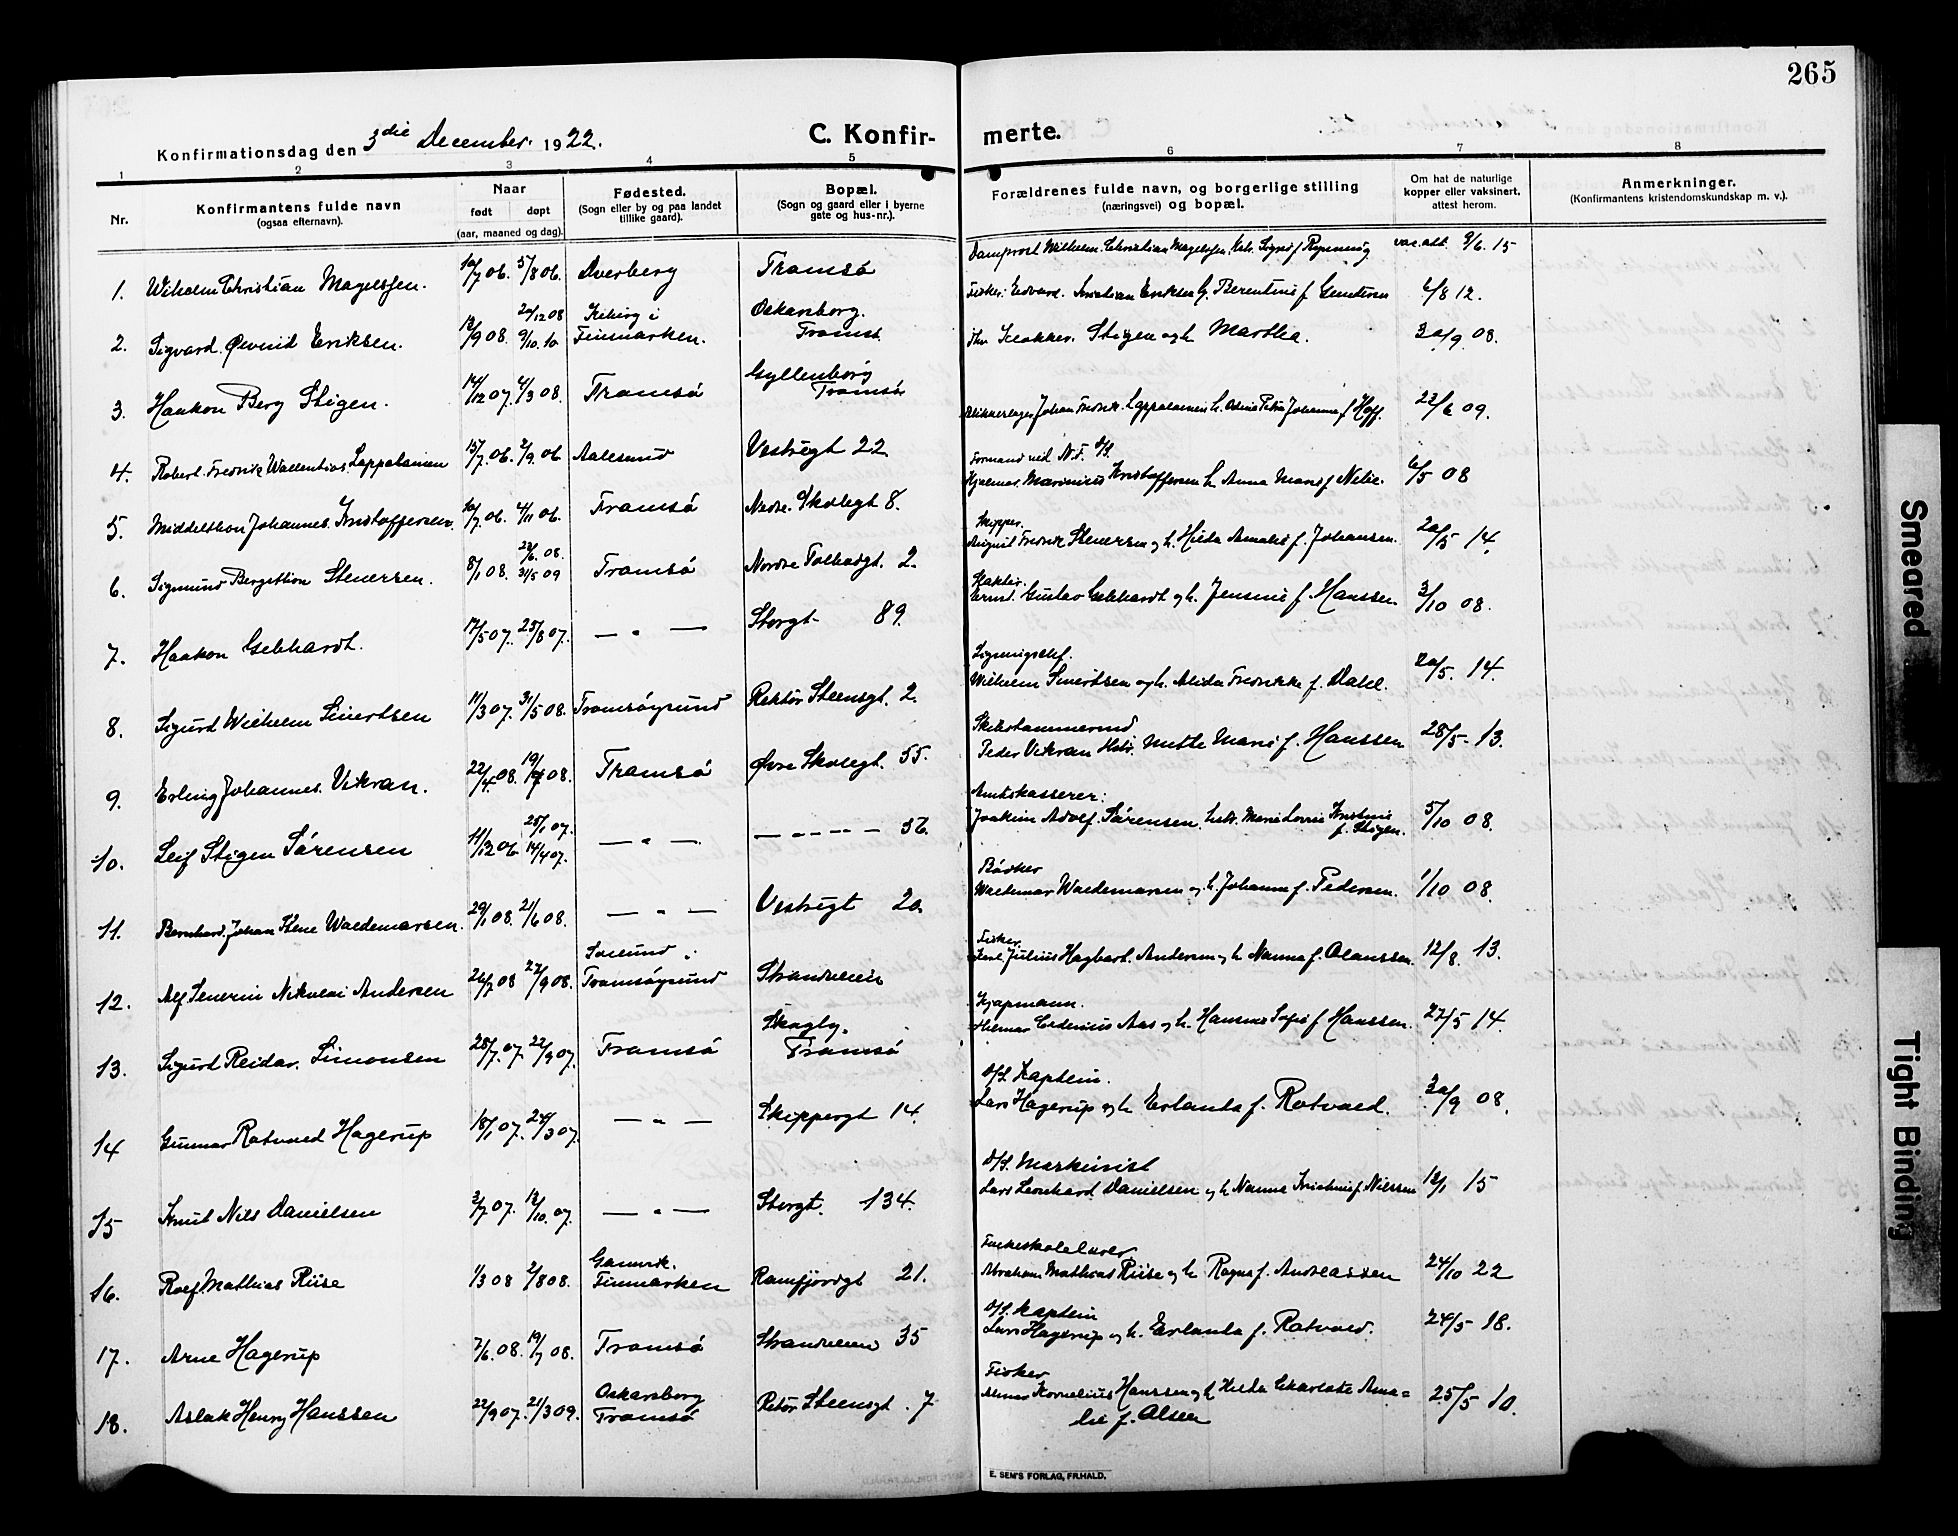 265
Konfirmationsdag den 3die December 1922.
C. Konfir-merte.
1 2 3 4 5 6 7 8
Nr.
Konfirmantens fulde navn
(ogsaa efternavn).
Naar
født døpt
(aar, maaned og dag).
Fødested.
(Sogn eller by og paa landet
tillike gaard).
Bopæl.
(Sogn og gaard eller i byerne
gate og hus-nr.).
Forældrenes fulde navn, og borgerlige stilling
(næringsvei) og bopæl.
Om hat de naturlige
kopper eller vaksinert.
attest herom.
Anmerkninger.
(Konfirmantens kristendomskundskap m. v.).
1. Wilhelm Christian Magelssen. 10/7 06. 5/8 06. Dverberg Tromsø Domprost Wilhelm Christian Magelssen, Sigrid f. Rynning vac.att. 9/6 15
2. Sigvard Øivind Eriksen. 13/9 08. 20/12 08 9/10 10 Kiberg i Finmarken. Oskarsborg. Tromsø Fisker. Edvard Kristian Eriksen Berentine f. 6/8 12.
3. Haakon Berg Stigen. 14/12 07. 4/3 08. Tromsø Gyllenborg Tromsø Klokker. Stigen og h. Martha. 30/9 08.
4. Robert Fredrik Lappalainen 15/7 06. 2/9 06 Aalesund Vestregt 22 Blikkenslager Johan Fredrik Lappalainen h. Petra Johanna f. Hoff. 22/6 09.
5. Middelthon Johannes Kristoffersen. 10/7 06. 4/11 06. Tromsø Nedre Skolegt 8. Formand ved Hjalmar Marinius Kristoffersen h. Anna Marie f. Nilie. 6/5 08
6. Sigmund Bergithon Stenersen. 8/1 08. 22/6 08. 31/5 09 Tromsø Nordre Tolbodgt. 2. Skipper. August Fredrik Stenersen og h. Hilda Amalie f. Johansen. 20/5 14.
7. Haakon Gebhardt. 17/5 07. 25/8 07. — " — Storgt- 89. Gustav Gebhardt og h. Jensine f. Hanssen 3/10 08.
8. Sigurd Wilhelm Sivertsen 11/3 07. 31/5 08. Tromsøysund Rektor Steensgt. 2. Ligningschef. Wilhelm Sivertsen og h. Alida Fredrikke f. Dahl. 20/5. 14.
9. Erling Johannes Vikran. 22/4 08. 19/7 08. Tromsø Øvre Skolegt. 55. Skibstømmermd Peder Vikran Mette Marie f. Hanssen 28/5- 13.
10. Leif Stigen Sørensen 11/12 06 25/1 07. 14/4 07. — " —. — " — — — 56. Amtskasserer: Joakim Adolf Sørensen, Marie Lovise Kristine f. Stigen. 5/10 08.
11. Bernhard Johan Waldemarsen. 29/1 08. 21/6 08. — " — Vestregt 20. Bødker Waldemar Waldemarsen og h. Johanna f. Pedersen. 1/10 08.
12. Alf Severin Nikolai Andersen 26/7 08 27/9 08. Tromsøysund Strandveien Fisker Karl Julius Hagbart Andersen og h. Nanna f. Olaussen. 12/8. 13.
13. Sigurd Reidar Simonsen 28/7. 07. 22/9 07. Tromsø Skogly. Tromsø Kjøpmann. Hilmar Aas og h. Hansine Sofie f. Hanssen. 27/5 14.
14 Gunnar Rotvold Hagerup 18/1 07. 24/3 07. — " — Skippergt 14. D/S. Kaptein. Lars Hagerup og h. Erlanda f. Rotvold. 30/9 08.
15 Knut Nils Danielsen 3/7 07. 13/10. 07. — " — Storgt. 134. D/S. Maskinist Lars Leonhard Danielsen og h. Nanna Kristine f. Nilssen 12/1 15
16. Rolf Mathias Riise 1/3 08 2/8 08. Gamvik. Finmarken Ramfjordgt 21. Folkeskolelærer Abraham Mathias Riise og h. Ragna f. Andreassen 24/10 22
17. Arne Hagerup 7/6. 08. 19/7 08. Tromsø Strandveien 35 D/S. Kaptein Lars Hagerup og h. Erlanda f. Rotvold. 24/5 18.
18. Aslak Henry Hanssen 22/9 07. 21/3 09. Oskarsborg Tromsø Rektor Steensgt. 7 Fisker Kornelius Hanssen og h. Hilda Charlotte Ama=lie f. Olsen 25/5 10.
E. SEM'S FORLAG, FR.HALD.
Smeared
Tight Binding